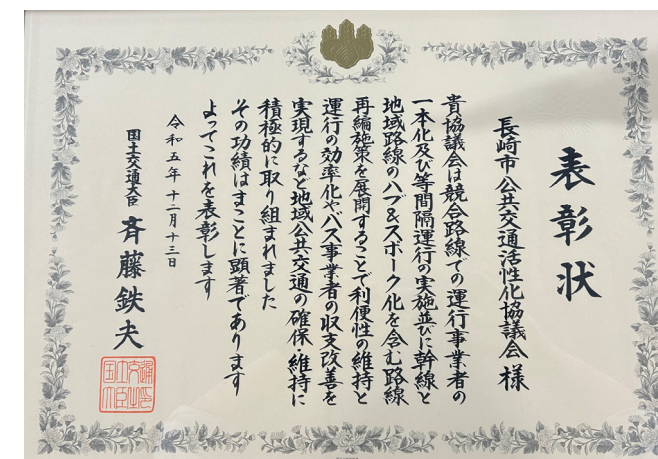 表彰状
長崎市公共交通活性化協議会様
貴協議会は競合路線での運行事業者の
一本化及び等間隔運行の実施並びに幹線と
地域路線のハブ&スポーク化を含む路線
再編施策を展開することで利便性の維持と
運行の効率化やバス事業者の収支改善を
実現するなど地域公共交通の確保・維持に
積極的に取り組まれました
その功績はまことに顕著であります
よってこれを表彰します
令和五年十二月十三日
国土交通大臣 斉藤鉄夫
国土交通大臣印